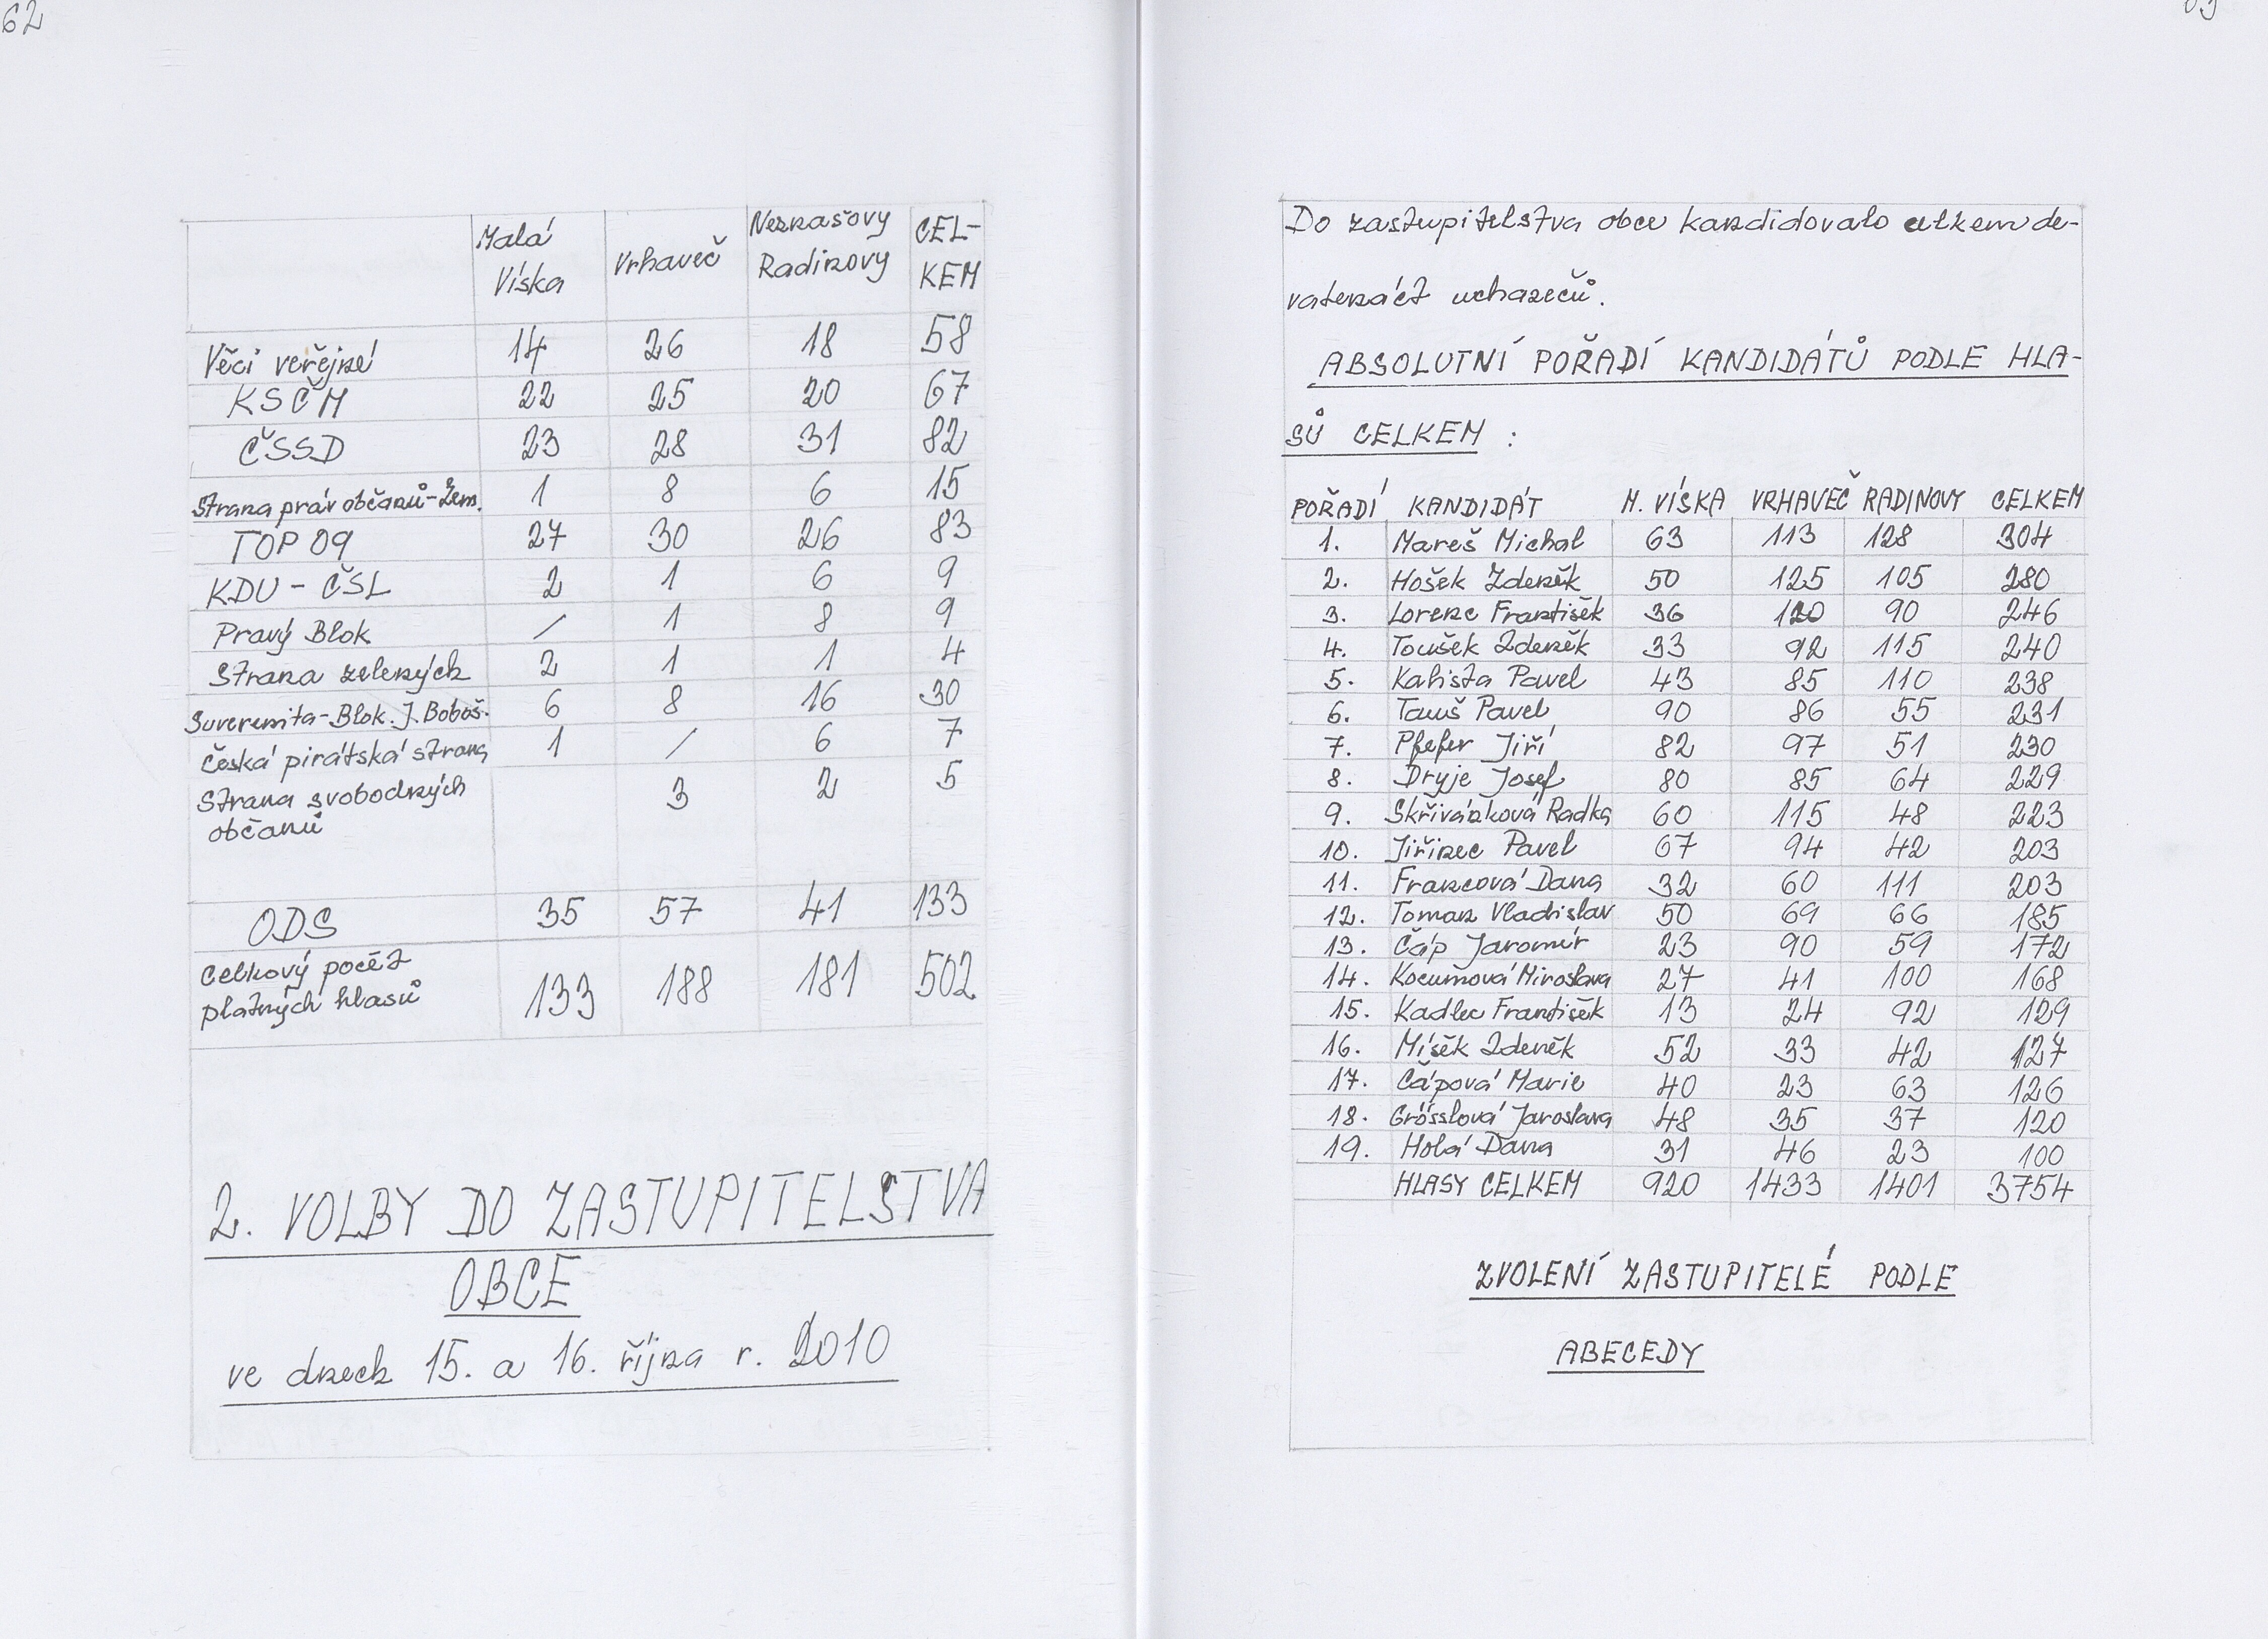 62
Malá Víska Vrhaveč Neznašovy Radinovy CEL-KEM
Věci veřejné 14 26 18 58
KSČM 22 25 20 67
ČSSD 23 28 31 82
Strana práv občanů-Zem. 1 8 6 15
TOP 09 27 30 26 83
KDU - ČSL 2 1 6 9
Pravý Blok / 1 8 9
Strana zelených 2 1 1 4
Suverenita-Blok. J. Boboš. 6 8 16 30
Česká pirátská strana 1 / 6 7
Strana svobodných 3 2 5
občanů
ODS 35 57 41 133
Celkový počet
platných hlasů 133 188 181 502
2. VOLBY DO ZASTUPITELSTVA
OBCE
ve dnech 15. a 16. října r. 2010
Do zastupitelstva obce kandidovalo celkem de-
vatenáct uchazečů.
ABSOLUTNÍ POŘADÍ KANDIDÁTŮ PODLE HLA-
SŮ CELKEM :
POŘADÍ KANDIDÁT M. VÍSKA VRHAVEČ RADINOVY CELKEM
1. Mareš Michal 63 113 128 304
2. Hošek Zdeněk 50 125 105 280
3. Lorenc František 36 120 90 246
4. Toušek Zdeněk 33 92 115 240
5. Kalista Pavel 43 85 110 238
6. Tauš Pavel 90 86 55 231
7. Pfefer Jiří 82 97 51 230
8. Dryje Josef 80 85 64 229
9. Skřivánková Radka 60 115 48 223
10. Jiřinec Pavel 67 94 42 203
11. Francová Dana 32 60 111 203
12. Toman Vladislav 50 69 66 185
13. Čáp Jaromír 23 90 59 172
14. Kocumová Miroslava 27 41 100 168
15. Kadlec František 13 24 92 129
16. Míšek Zdeněk 52 33 42 127
17. Čápová Marie 40 23 63 126
18. Grösslová Jaroslava 48 35 37 120
19. Holá Dana 31 46 23 100
HLASY CELKEM 920 1433 1401 3754
ZVOLENÍ ZASTUPITELÉ PODLE
ABECEDY